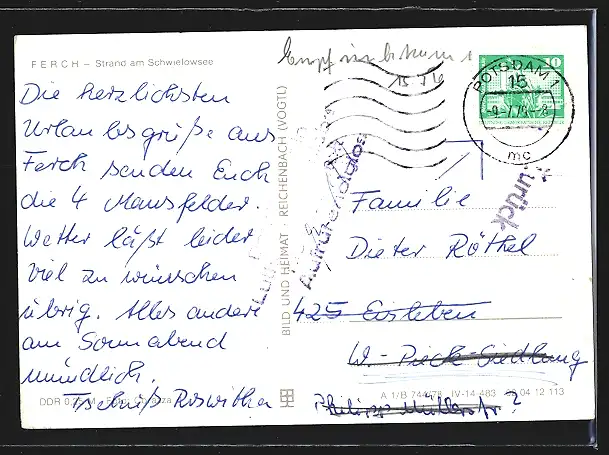 FERCH – Strand am Schwielowsee
Die herzlichsten
Urlaubsgrüße aus
Ferch senden Euch
die 4 Mansfelder.
Wetter läßt leider
viel zu wünschen
übrig. Alles andere
am Sonnabend
mündlich.
Tschüß Roswitha
DDR
BILD UND HEIMAT · REICHENBACH (VOGTL)
Empf unbekannt
10
POTSDAM 1
15
mc
Zurück
Familie
Dieter Röthel
425 Eisleben
W.-Pieck-Siedlung
Philipp-Müllerstr?
A 1/B 744/78 IV-14-483 09 04 12 113